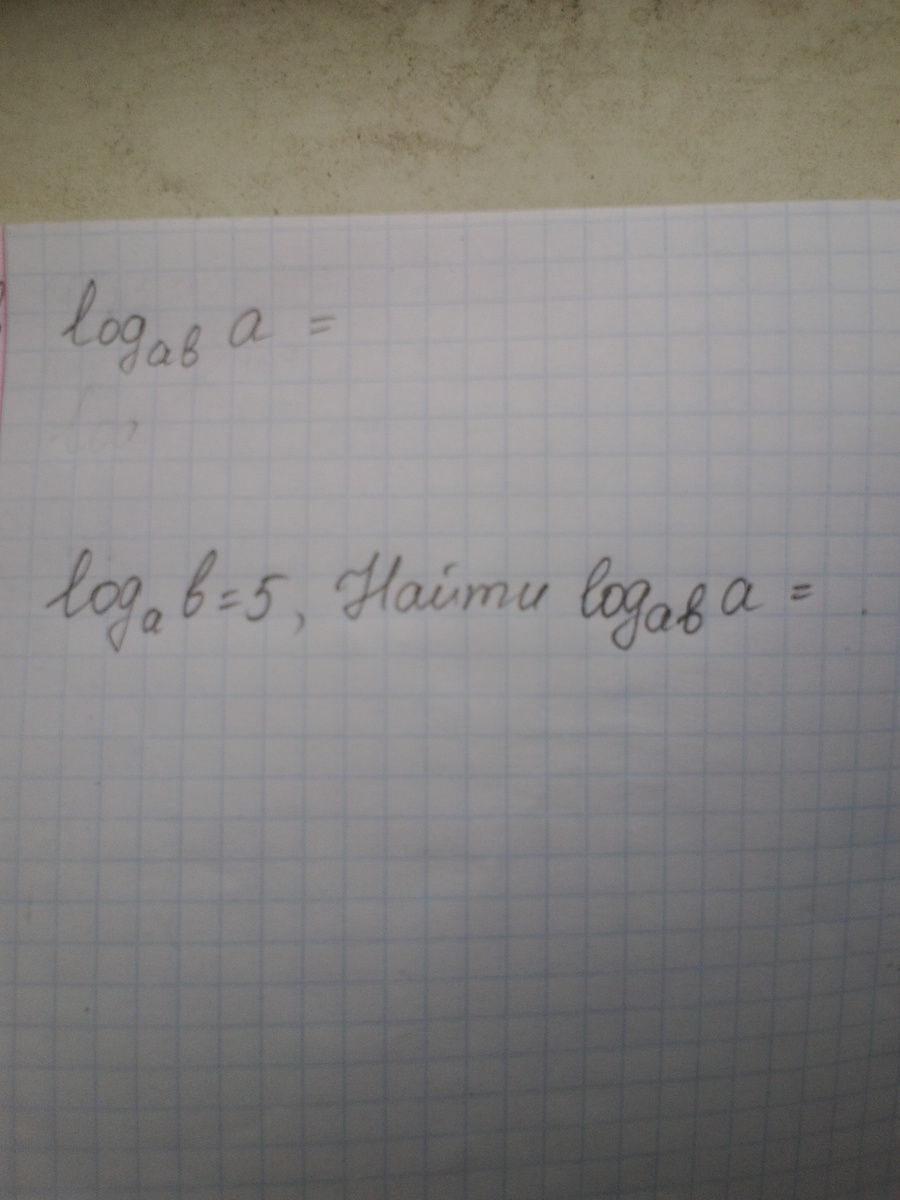 log_ab a =
log_a b = 5, Найти log_ab a =